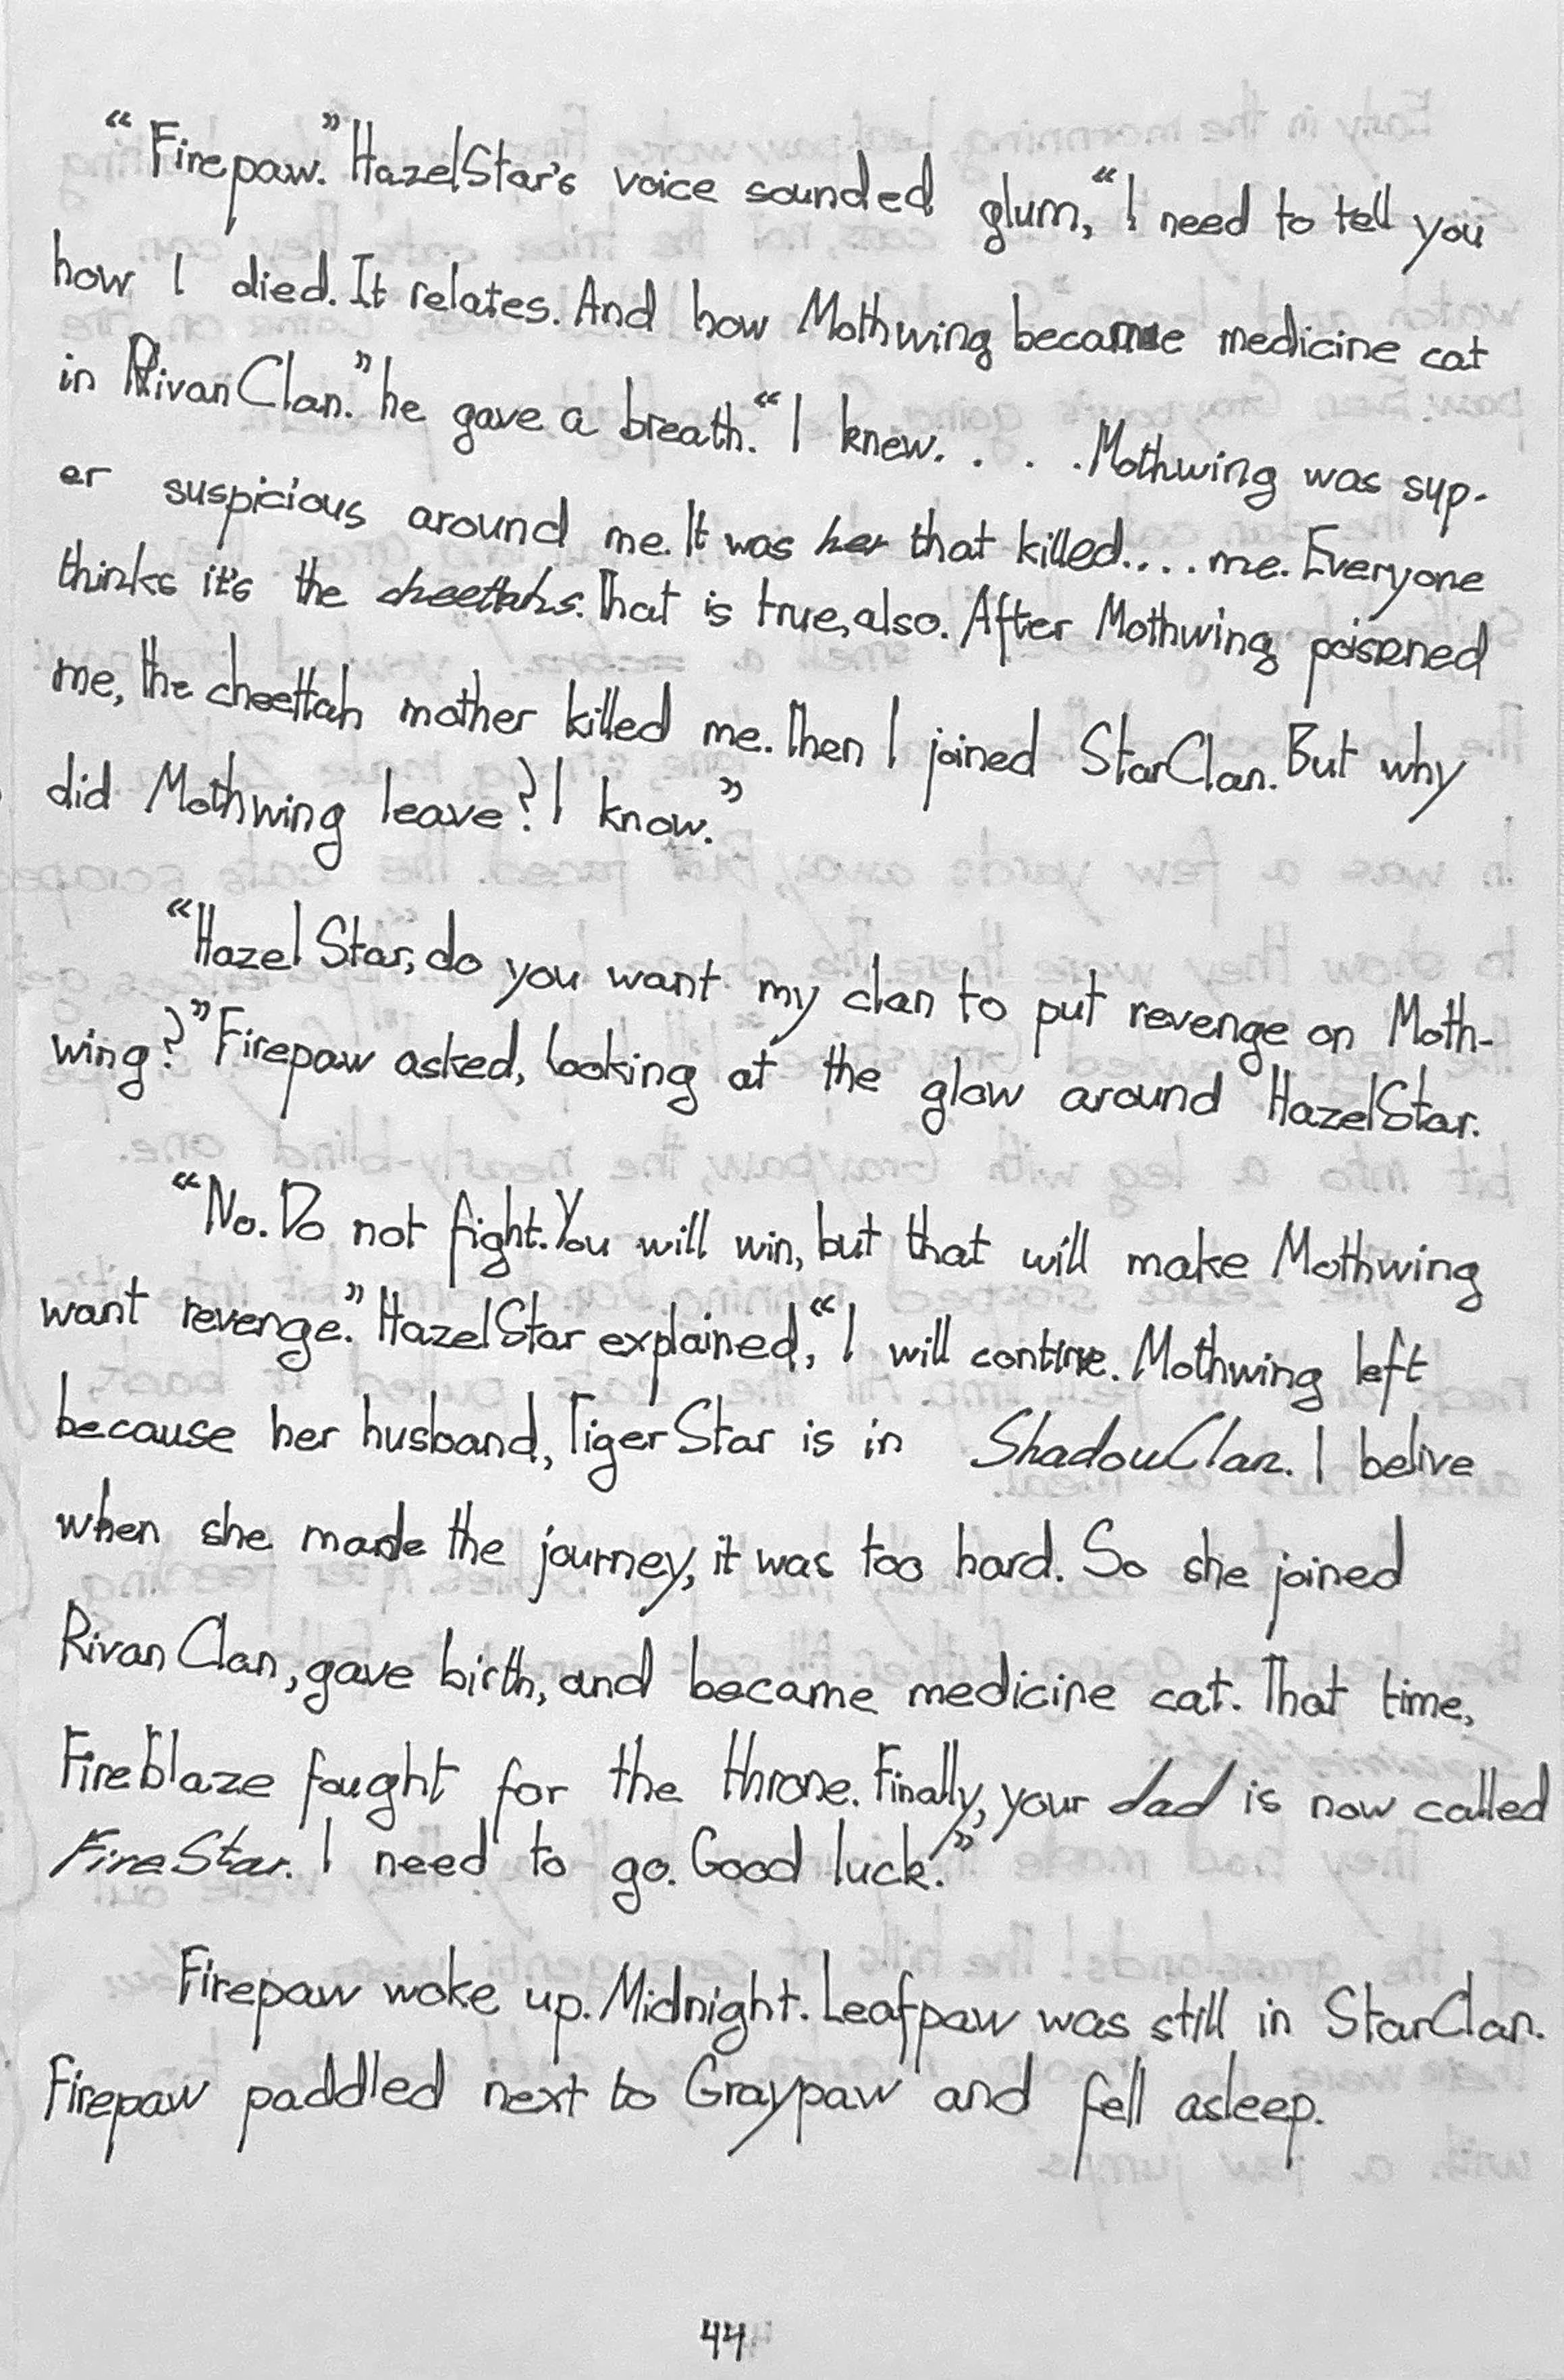 “Firepaw.” HazelStar's voice sounded glum, “I need to tell you
how I died. It relates. And how Mothwing became medicine cat
in RivanClan.” he gave a breath. “I knew. . . . Mothwing was sup-
er suspicious around me. It was her that killed.... me. Everyone
thinks it's the cheettahs. That is true, also. After Mothwing poisened
me, the cheettah mother killed me. Then I joined StarClan. But why
did Mothwing leave? I know.”
“Hazel Star, do you want my clan to put revenge on Moth-
wing?” Firepaw asked, looking at the glow around HazelStar.
“No. Do not fight. You will win, but that will make Mothwing
want revenge.” HazelStar explained, “I will contine. Mothwing left
because her husband, TigerStar is in ShadowClan. I belive
when she made the journey, it was too hard. So she joined
RivanClan, gave birth, and became medicine cat. That time,
Fireblaze fought for the throne. Finally, your dad is now called
FireStar. I need to go. Good luck.”
Firepaw woke up. Midnight. Leafpaw was still in StarClan.
Firepaw paddled next to Graypaw and fell asleep.
44